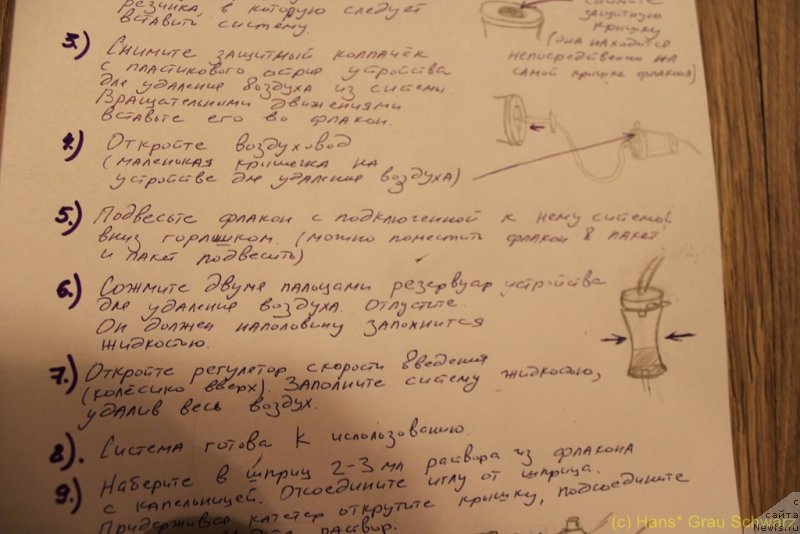 резинка, в которую следует
вставить систему.
снимите
защитную
крышку
(она находится
непосредственно на
самой крышке флакона)
3.) Снимите защитный колпачёк
с пластикового острия устройства
для удаления воздуха из системы.
Вращательными движениями
вставьте его во флакон.
4.) Откройте воздуховод
(маленькая крышечка на
устройстве для удаления воздуха)
5.) Подвесьте флакон с подключенной к нему системой
вниз горлышком. (можно поместить флакон в пакет
и пакет подвесить)
6.) Сожмите двумя пальцами резервуар устройства
для удаления воздуха. Отпустите.
Он должен наполовину заполнится
жидкостью.
7.) Откройте регулятор скорости введения
(колёсико вверх). Заполните систему жидкостью,
удалив весь воздух.
8). Система готова к использованию.
9.) Наберите в шприц 2-3 мл раствора из флакона
с капельницей. Отсоедините иглу от шприца.
Придерживая катетер открутите крышку, подсоедините
раствор.
(c) Hans* Grau Schwarz
с
сайта
Newfs.ru